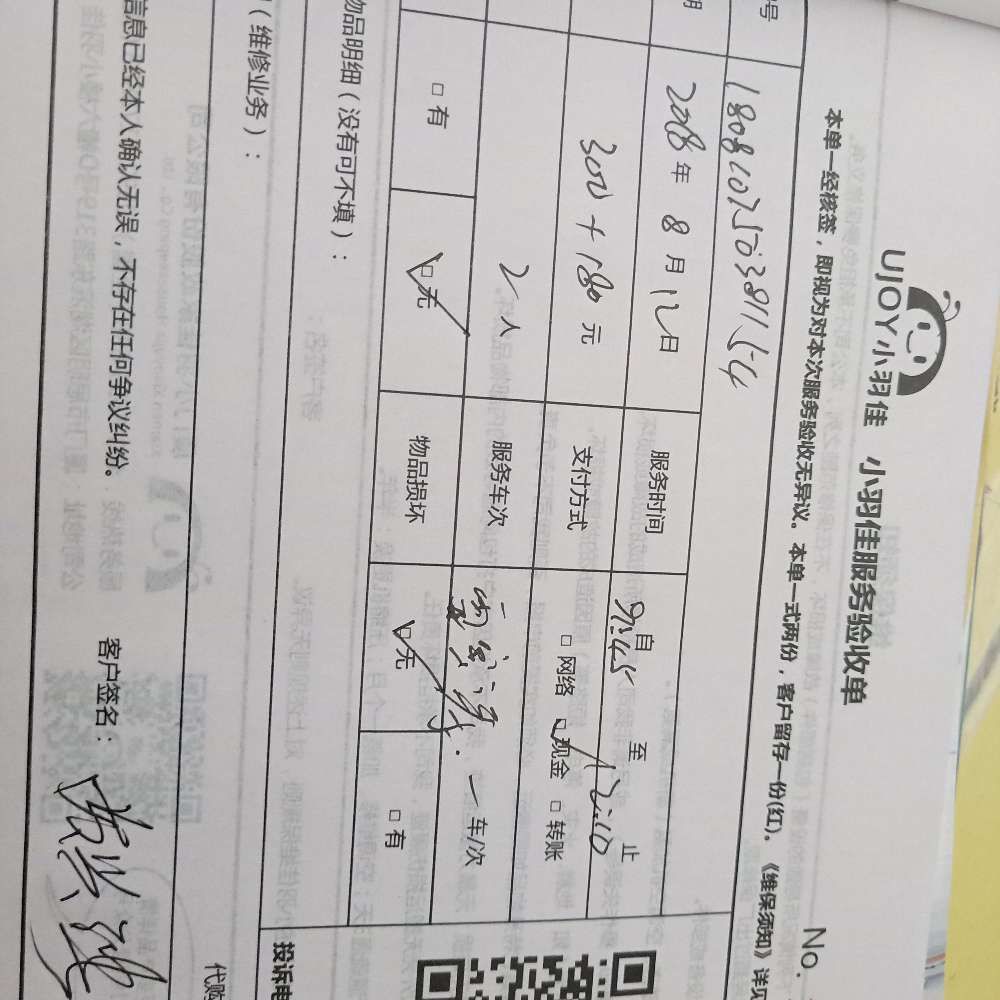 UJOY小羽佳 小羽佳服务验收单
No.
本单一经核签，即视为对本次服务验收无异议。本单一式两份，客户留存一份(红)。《维保须知》详见
号
期 2018年8月12日 服务时间 自9:45至12:10止
300+180元 支付方式 □网络 ☑现金 □转账
2人 服务车次 一车/次
□有 ☑无 物品损坏 ☑无 □有
物品明细（没有可不填）：
（维修业务）：
投诉电
信息已经本人确认无误，不存在任何争议纠纷。 客户签名：
代购